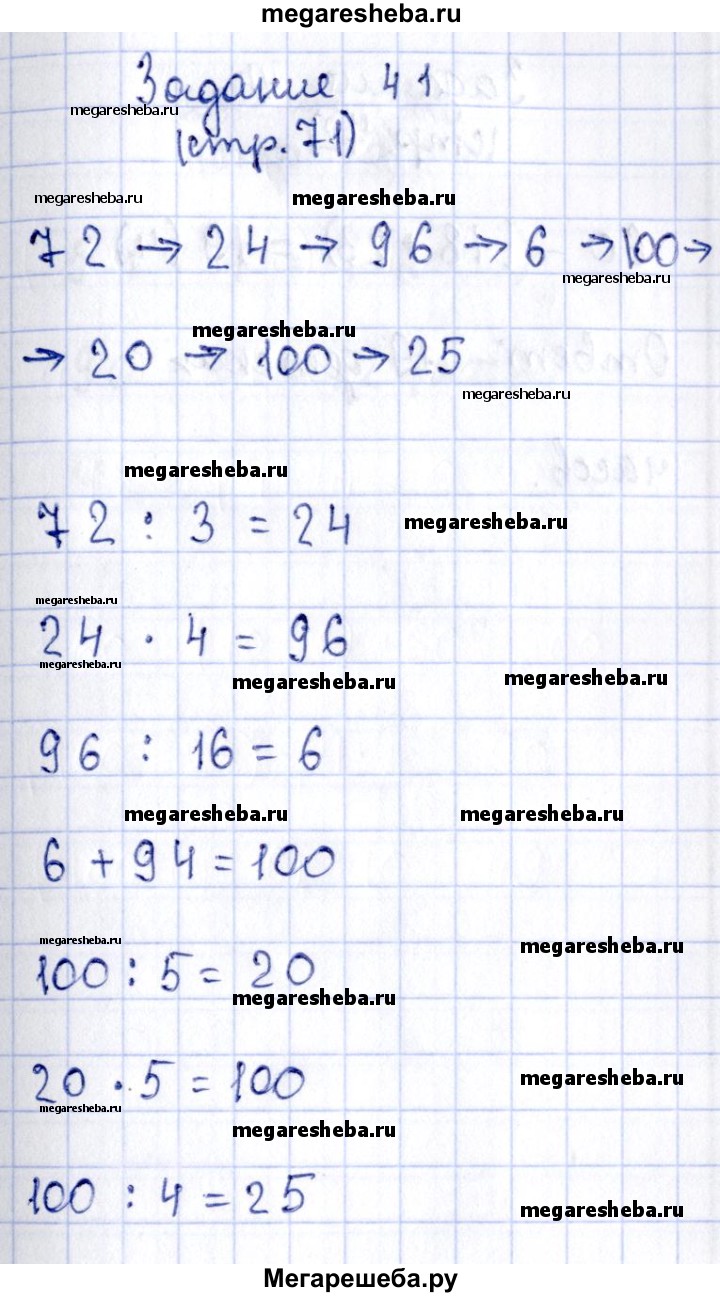 megaresheba.ru
Задание 41
megaresheba.ru
(стр. 71)
megaresheba.ru
megaresheba.ru
72 → 24 → 96 → 6 → 100 →
megaresheba.ru
megaresheba.ru
→ 20 → 100 → 25
megaresheba.ru
megaresheba.ru
72 : 3 = 24
megaresheba.ru
megaresheba.ru
24 · 4 = 96
megaresheba.ru
megaresheba.ru
megaresheba.ru
96 : 16 = 6
megaresheba.ru
megaresheba.ru
6 + 94 = 100
megaresheba.ru
megaresheba.ru
100 : 5 = 20
megaresheba.ru
20 · 5 = 100
megaresheba.ru
megaresheba.ru
megaresheba.ru
100 : 4 = 25
megaresheba.ru
Мегарешеба.ру